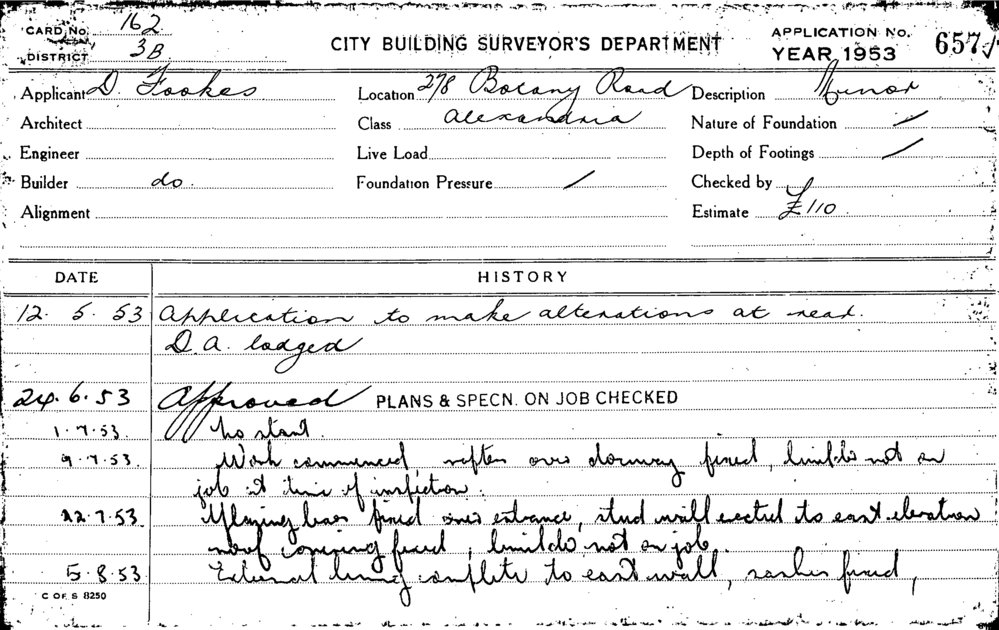 CARD No. 162
DISTRICT 3B
CITY BUILDING SURVEYOR'S DEPARTMENT
APPLICATION No. 657
YEAR 1953
Applicant D. Fookes
Location 278 Botany Road
Description Minor
Architect
Class Alexandria
Nature of Foundation /
Engineer
Live Load
Depth of Footings /
Builder do.
Foundation Pressure /
Checked by
Alignment
Estimate £110
DATE HISTORY
12. 5. 53 Application to make alterations at rear.
D.A. lodged
24.6.53 Approved PLANS & SPECN. ON JOB CHECKED
1.7.53. No start.
9.7.53. Work commenced, rafters over doorway fixed, builder not on
job at time of inspection.
22.7.53. Glazing bars fixed over entrance, stud wall erected to east elevation
roof covering fixed, builder not on job.
5.8.53 External lining complete to east wall, sashes fixed,
C OF S 8250